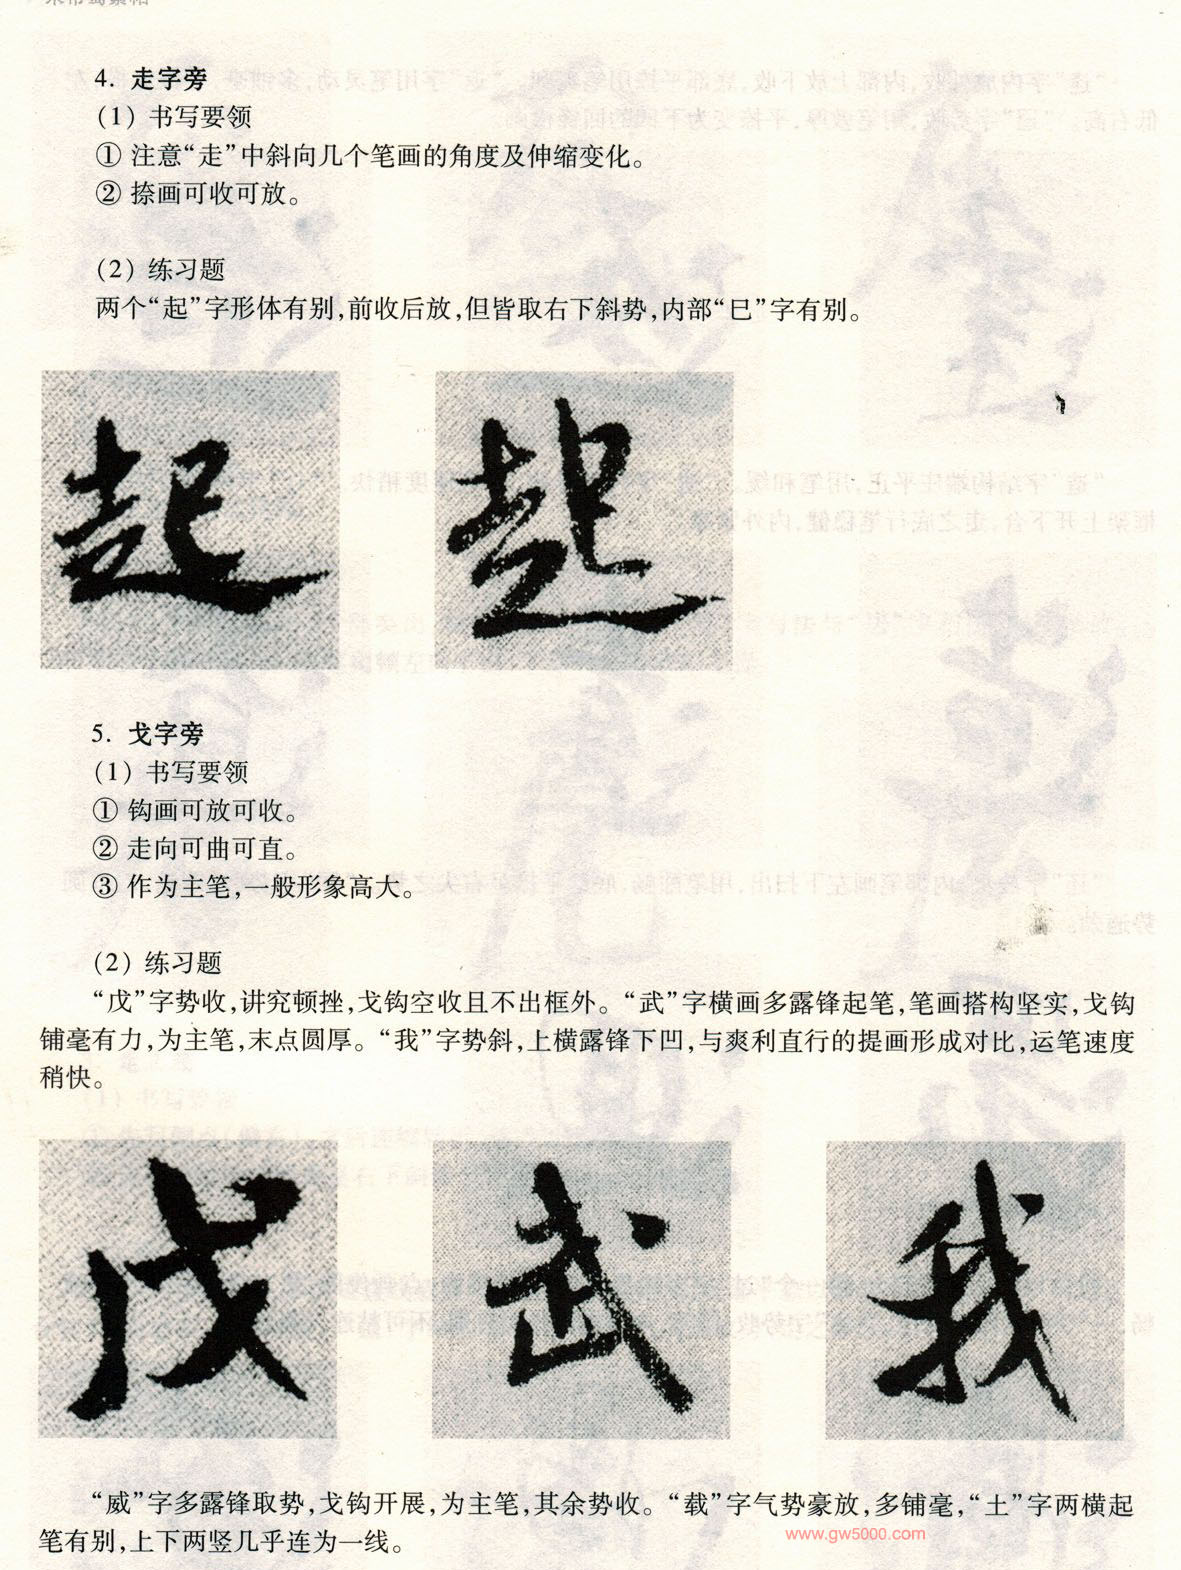 4. 走字旁
(1) 书写要领
① 注意“走”中斜向几个笔画的角度及伸缩变化。
② 捺画可收可放。
(2) 练习题
两个“起”字形体有别,前收后放,但皆取右下斜势,内部“巳”字有别。
起 起
5. 戈字旁
(1) 书写要领
① 钩画可放可收。
② 走向可曲可直。
③ 作为主笔,一般形象高大。
(2) 练习题
“戊”字势收,讲究顿挫,戈钩空收且不出框外。“武”字横画多露锋起笔,笔画搭构坚实,戈钩
铺毫有力,为主笔,末点圆厚。“我”字势斜,上横露锋下凹,与爽利直行的提画形成对比,运笔速度
稍快。
戊 武 我
“威”字多露锋取势,戈钩开展,为主笔,其余势收。“载”字气势豪放,多铺毫,“土”字两横起
笔有别,上下两竖几乎连为一线。
www.gw5000.com